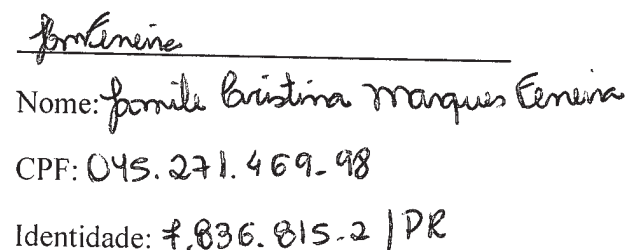 Nome: Jamile Cristina Marques Ferreira
CPF: 045.271.469-98
Identidade: 7.836.815-2 / PR